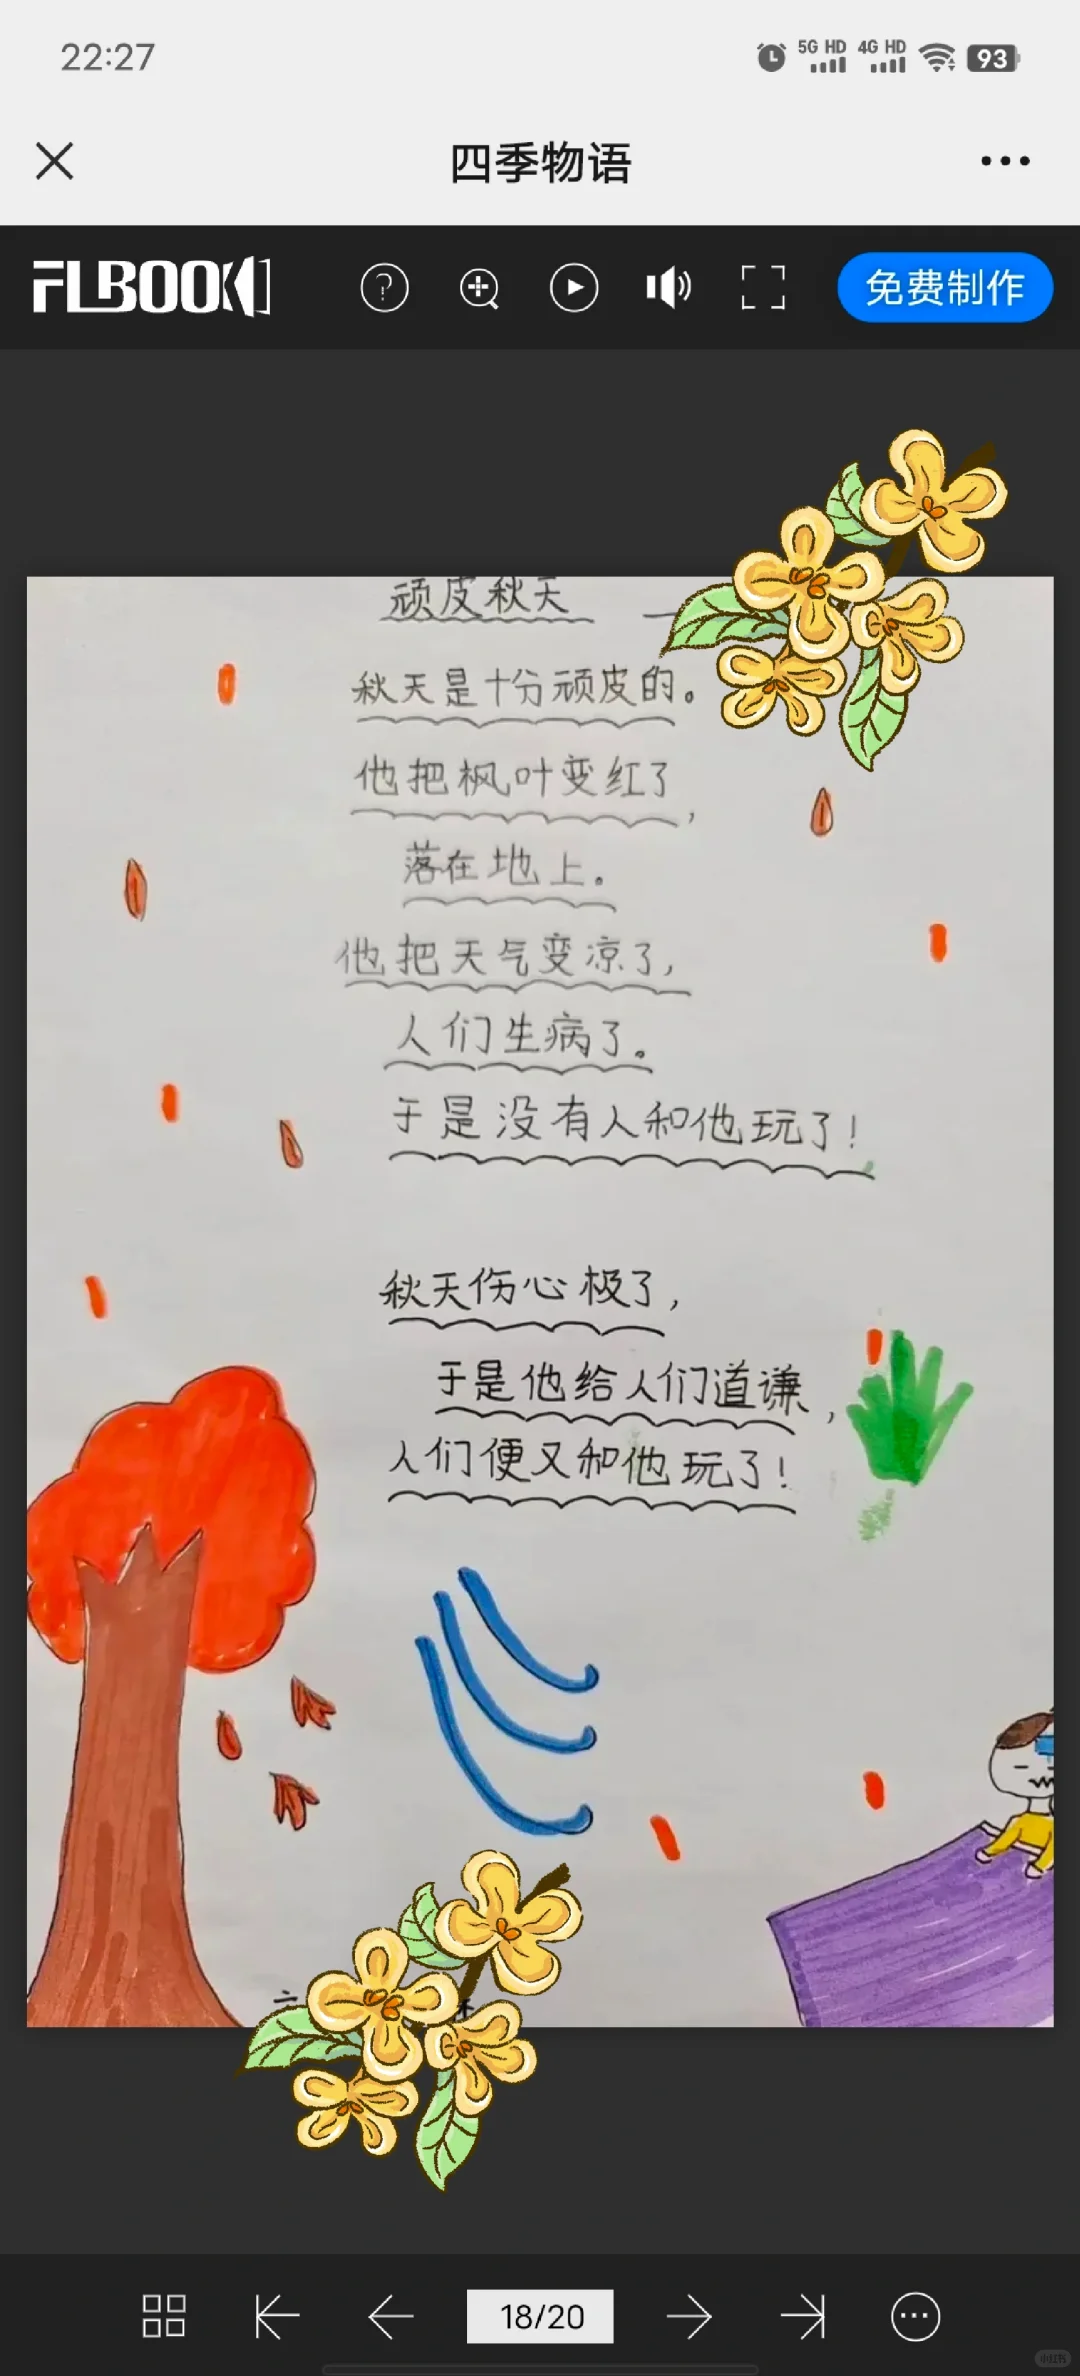 22:27
5G HD 4G HD 93
四季物语
FLBOOK
免费制作
顽皮秋天
秋天是十分顽皮的。
他把枫叶变红了，
落在地上。
他把天气变凉了，
人们生病了。
于是没有人和他玩了！
秋天伤心极了，
于是他给人们道谦，
人们便又和他玩了！
18/20
小红书